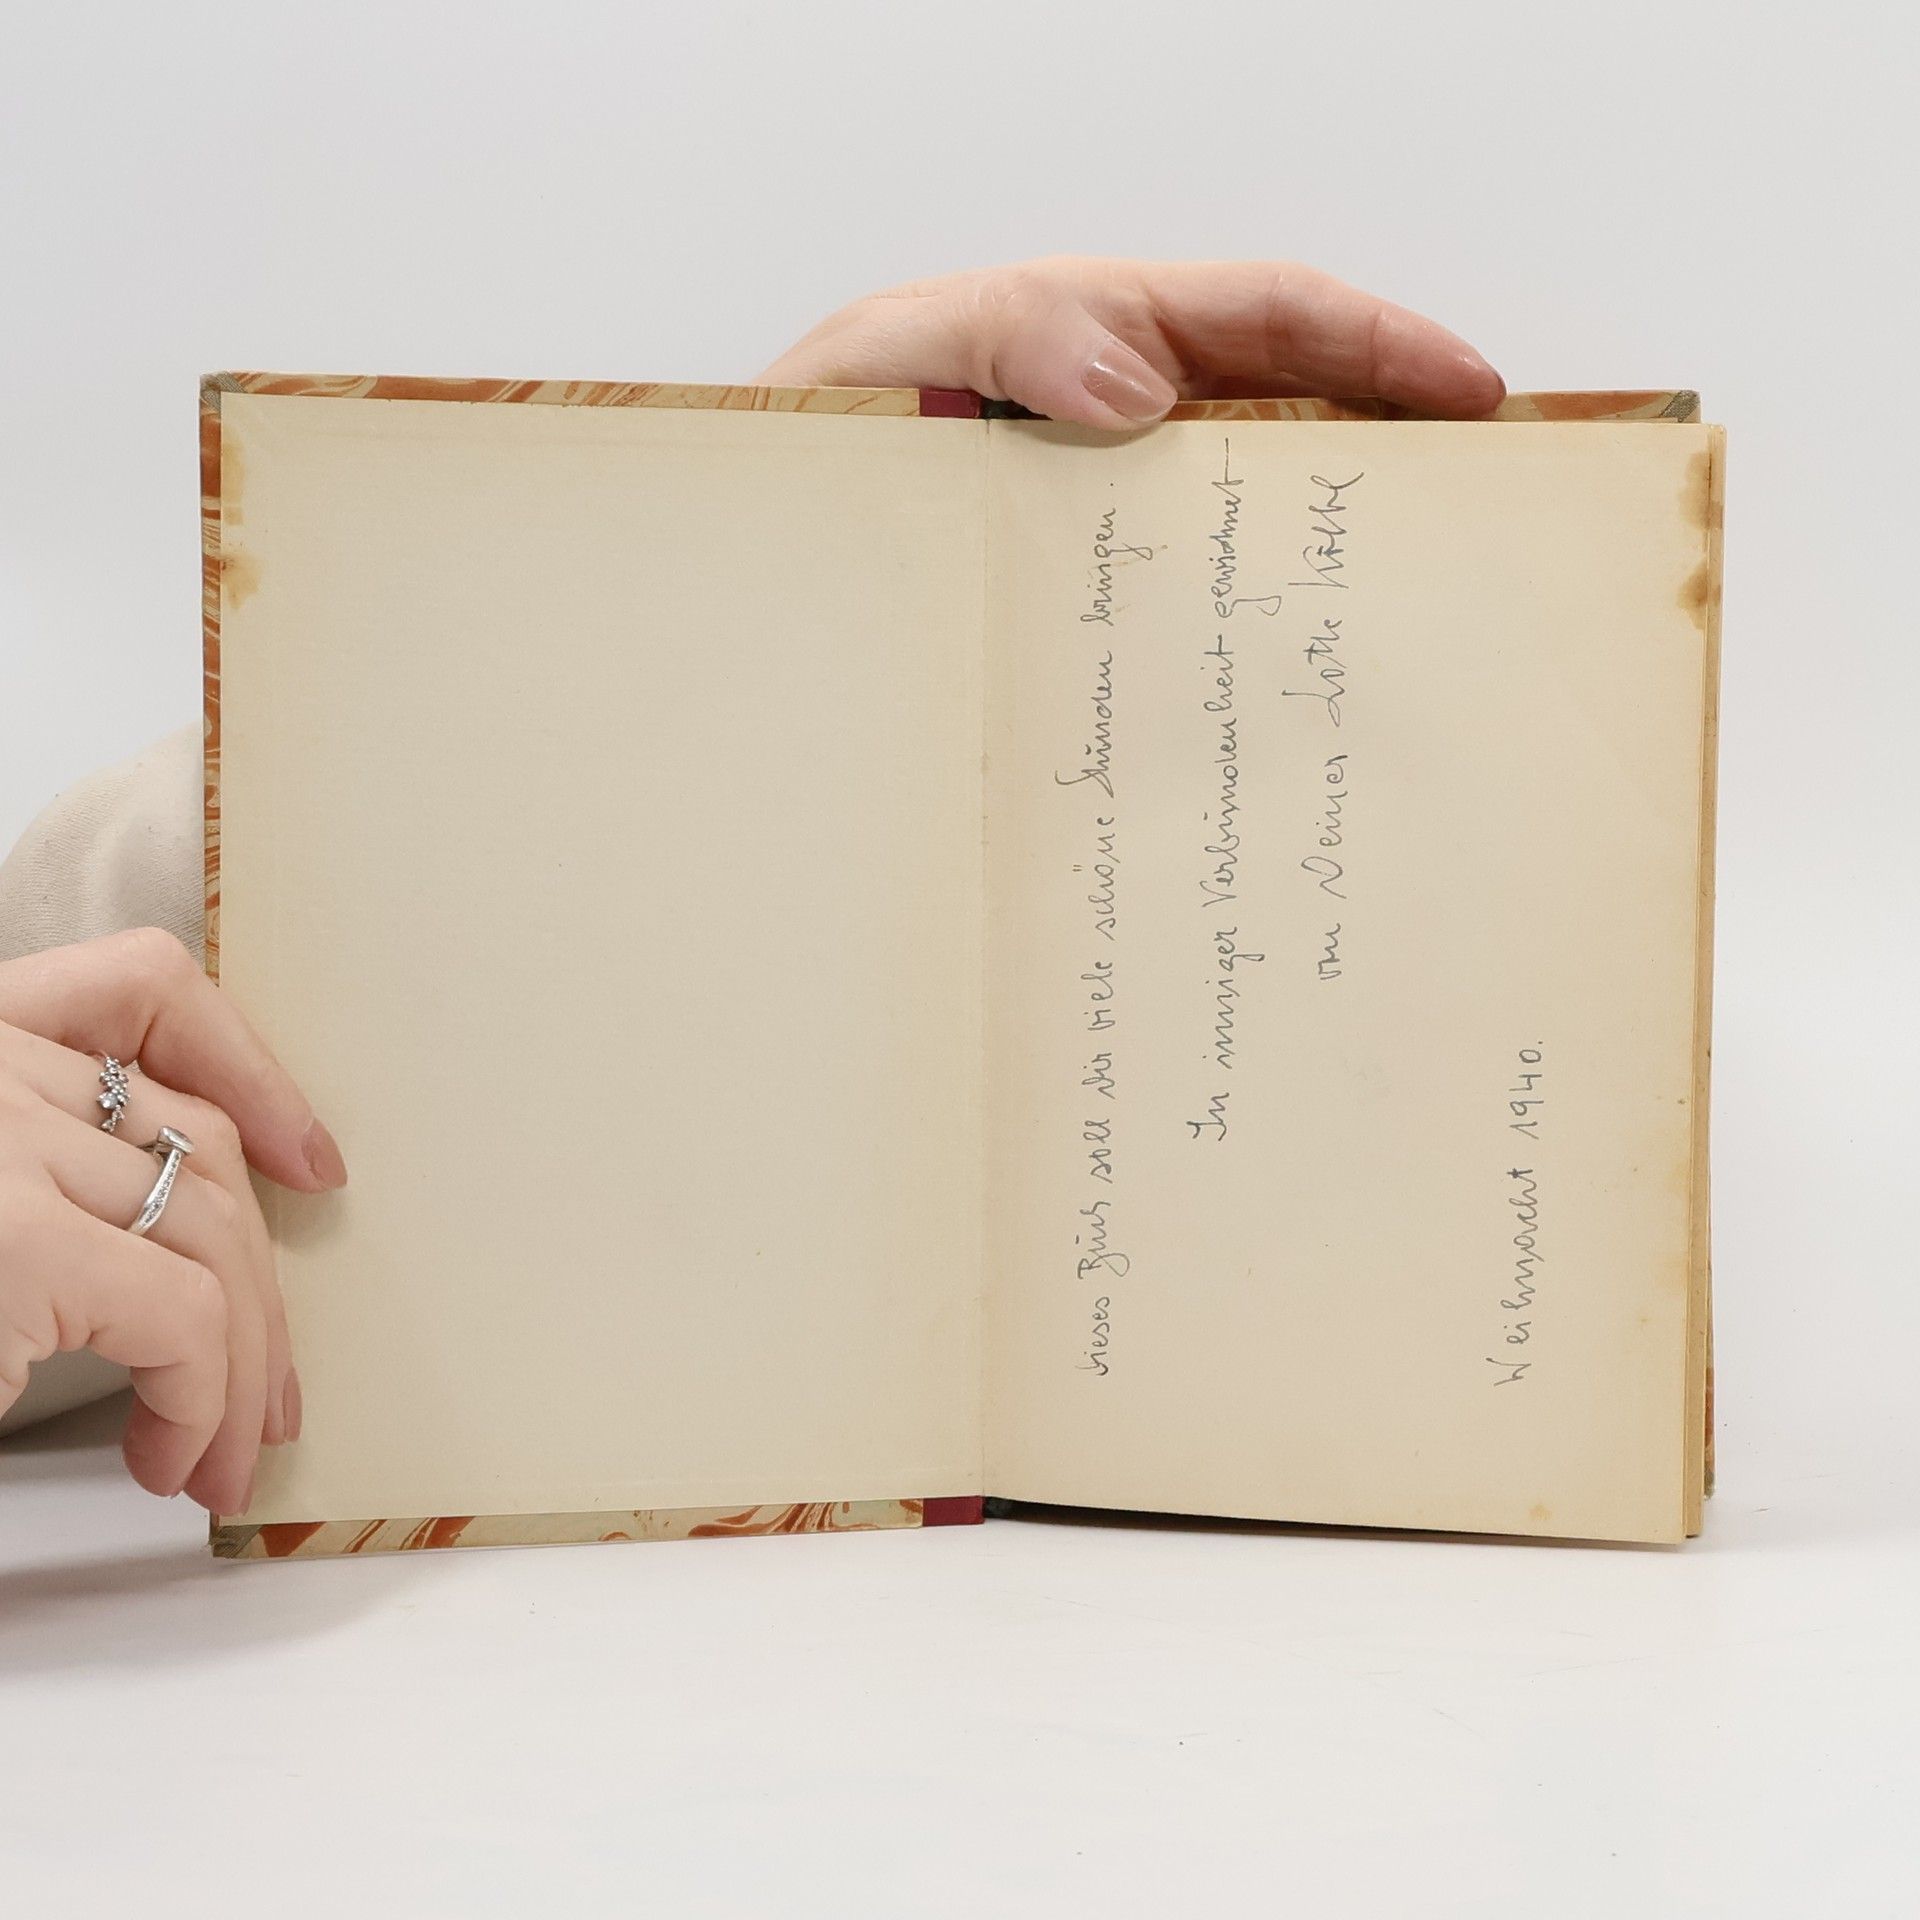 Dieses Buch soll Dir viele schöne Stunden bringen.
In inniger Verbundenheit gewidmet
von Deiner Lotte
Weihnacht 1940.